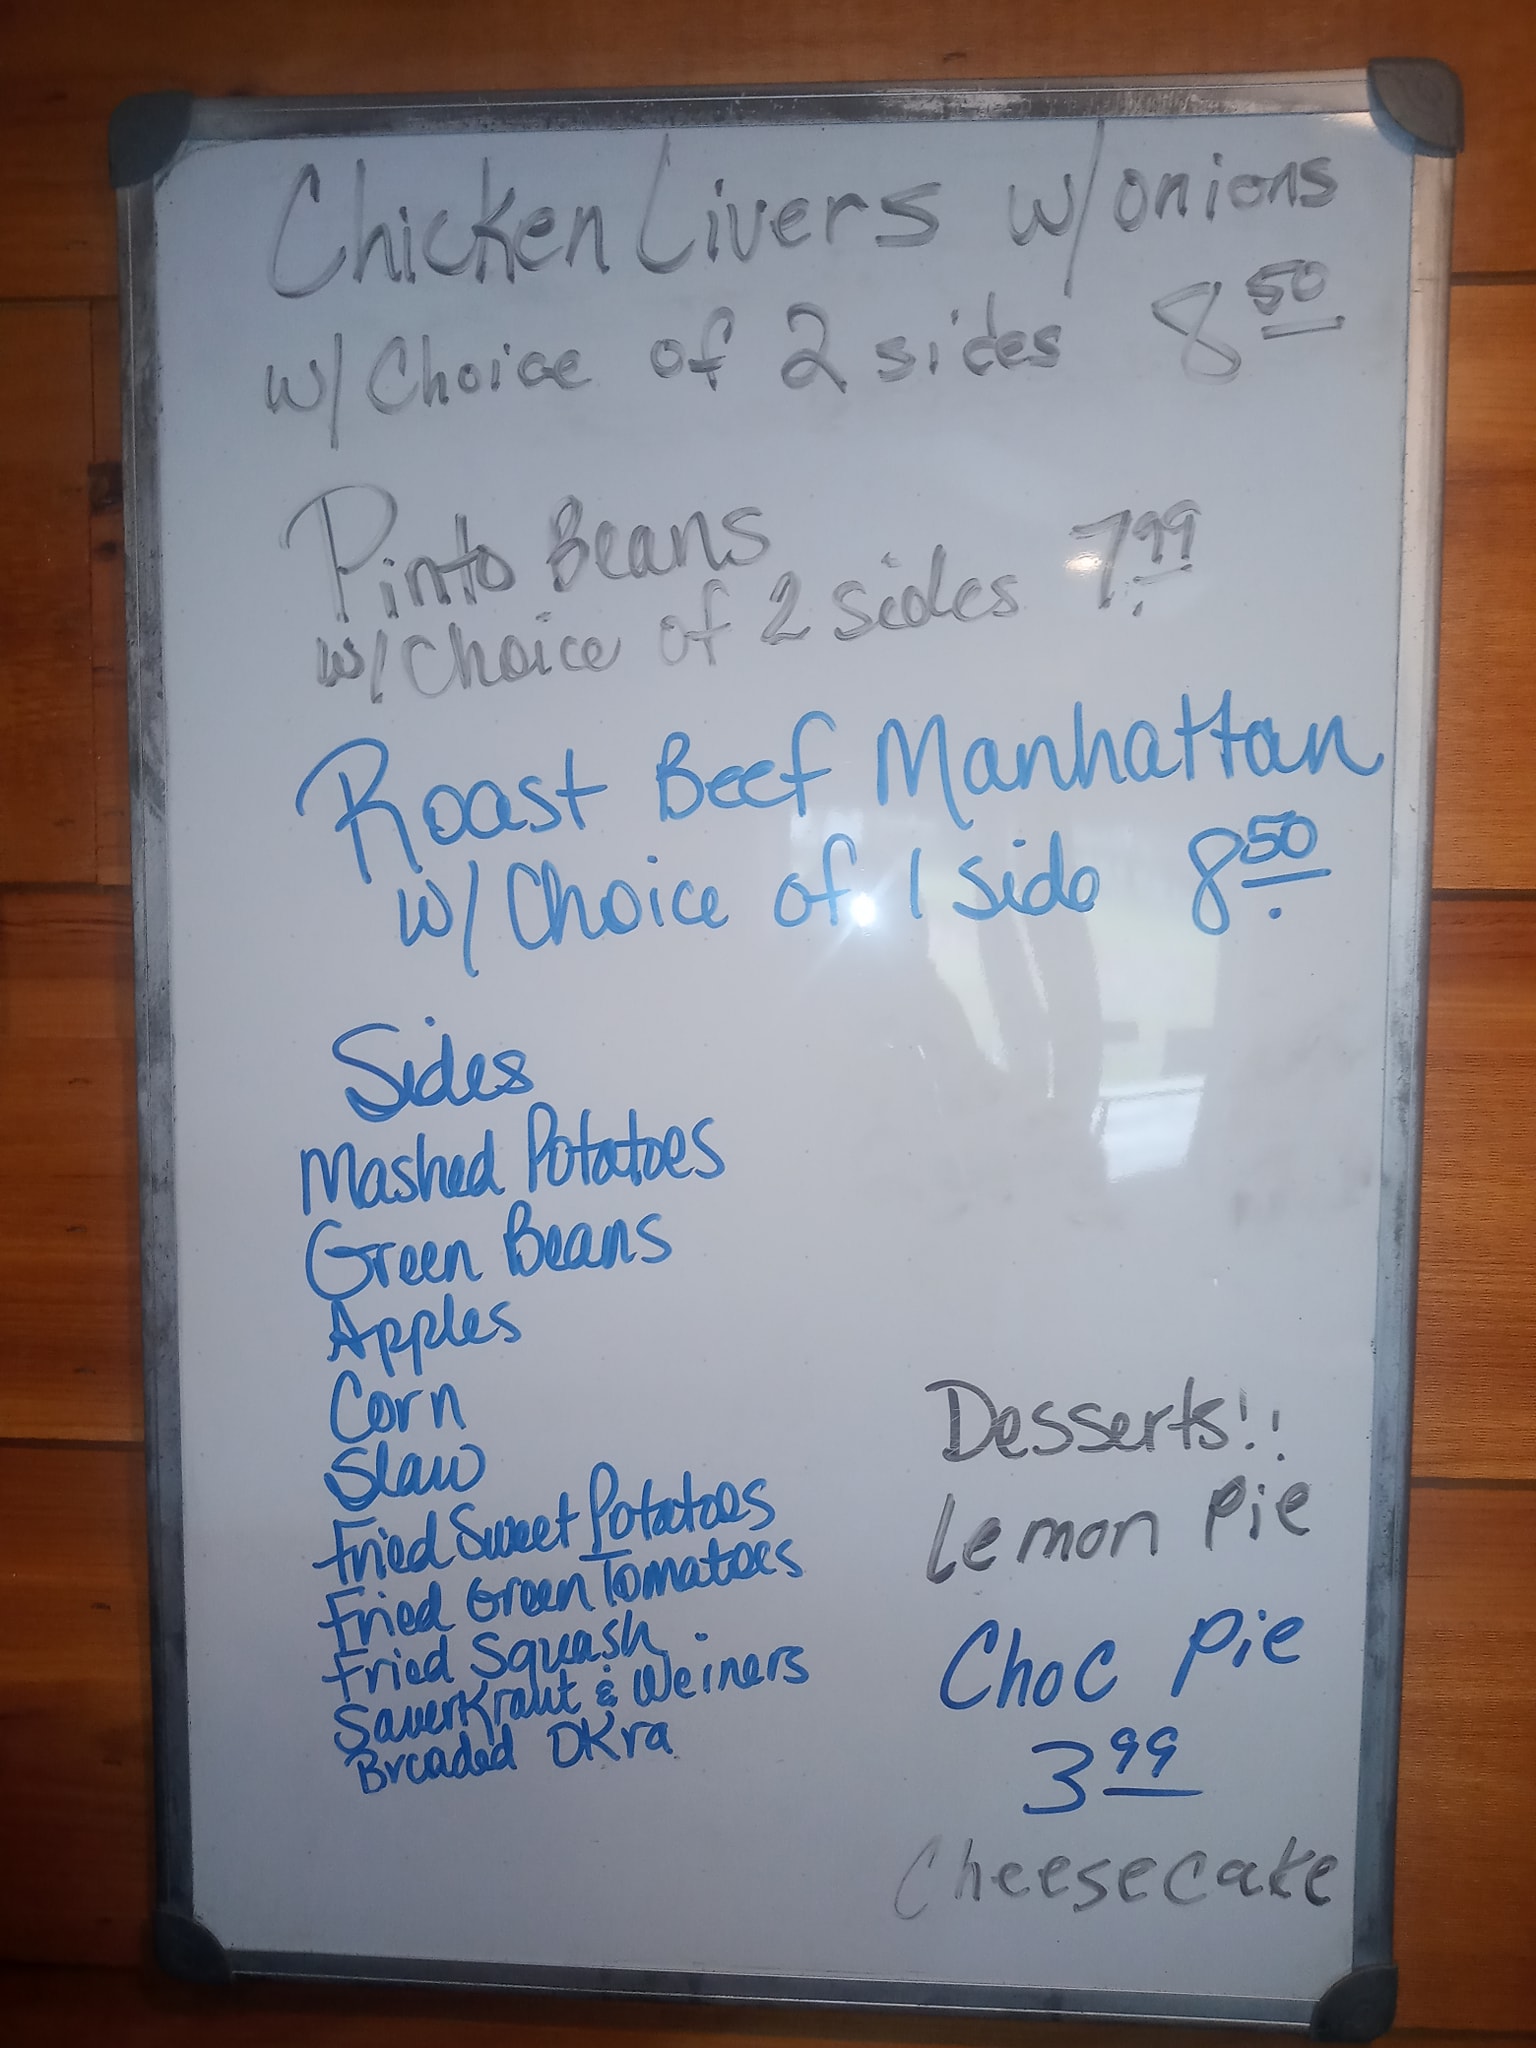 Chicken Livers w/onions
w/ Choice of 2 sides 8 50
Pinto Beans
w/ Choice of 2 sides 7.99
Roast Beef Manhattan
w/ Choice of 1 side 8.50
Sides
Mashed Potatoes
Green Beans
Apples
Corn
Slaw
Fried Sweet Potatoes
Fried Green Tomatoes
Fried Squash
SauerKraut & Weiners
Breaded OKra
Desserts!!
Lemon Pie
Choc Pie
3 99
Cheesecake